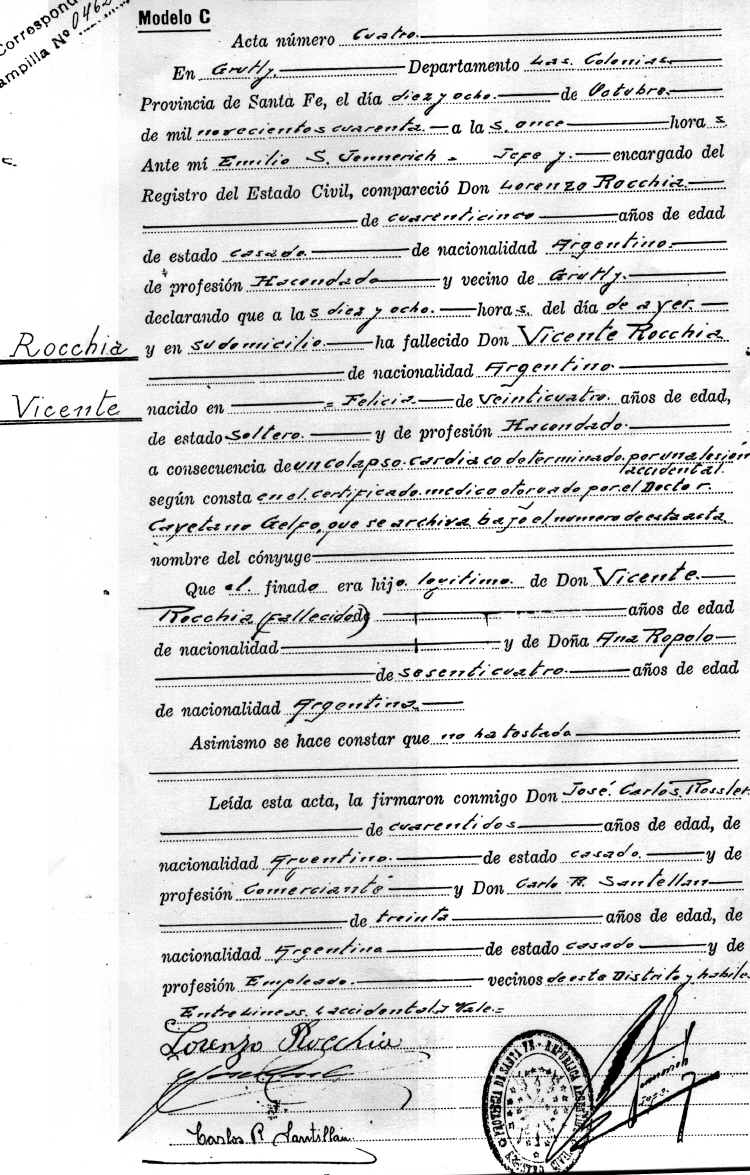 Correspond
ampilla Nº 0462
Modelo C
Acta número Cuatro.
En Grutly. Departamento Las. Colonias.
Provincia de Santa Fe, el día diez y ocho. de Octubre.
de mil novecientos cuarenta. a las. once horas
Ante mí Emilio S. Jennerich = Jefe y. encargado del
Registro del Estado Civil, compareció Don Lorenzo Rocchia.
de cuarenticinco años de edad
de estado casado. de nacionalidad Argentino.
de profesión Hacendado y vecino de Grutly.
declarando que a las diez y ocho. horas. del día de ayer.
Rocchia y en su domicilio. ha fallecido Don Vicente Rocchia
de nacionalidad Argentino.
Vicente nacido en = Felicia. de Veinticuatro. años de edad,
de estado Soltero. y de profesión Hacendado.
a consecuencia de un colapso cardiaco determinado por una lesión
accidental.
según consta en el certificado medico otorgado por el Doctor.
Cayetano Gelfo, que se archiva bajo el numero de esta acta.
nombre del cónyuge
Que el. finado era hijo. legitimo. de Don Vicente.
Rocchia (fallecido) de años de edad
de nacionalidad y de Doña Ana Ropolo
de sesenticuatro. años de edad
de nacionalidad Argentina.
Asimismo se hace constar que no ha testado
Leída esta acta, la firmaron conmigo Don José. Carlos. Rossler.
de cuarentidos años de edad, de
nacionalidad Argentino. de estado casado. y de
profesión Comerciante y Don Carlo R. Santellan
de treinta años de edad, de
nacionalidad Argentina de estado casado y de
profesión Empleado. vecinos de este Distrito y habiles
Entre Lineas. Laccidental: Vale=
Lorenzo Rocchia
Carlos R Santillan
PROVINCIA DE SANTA FE - REPÚBLICA ARGENTINA